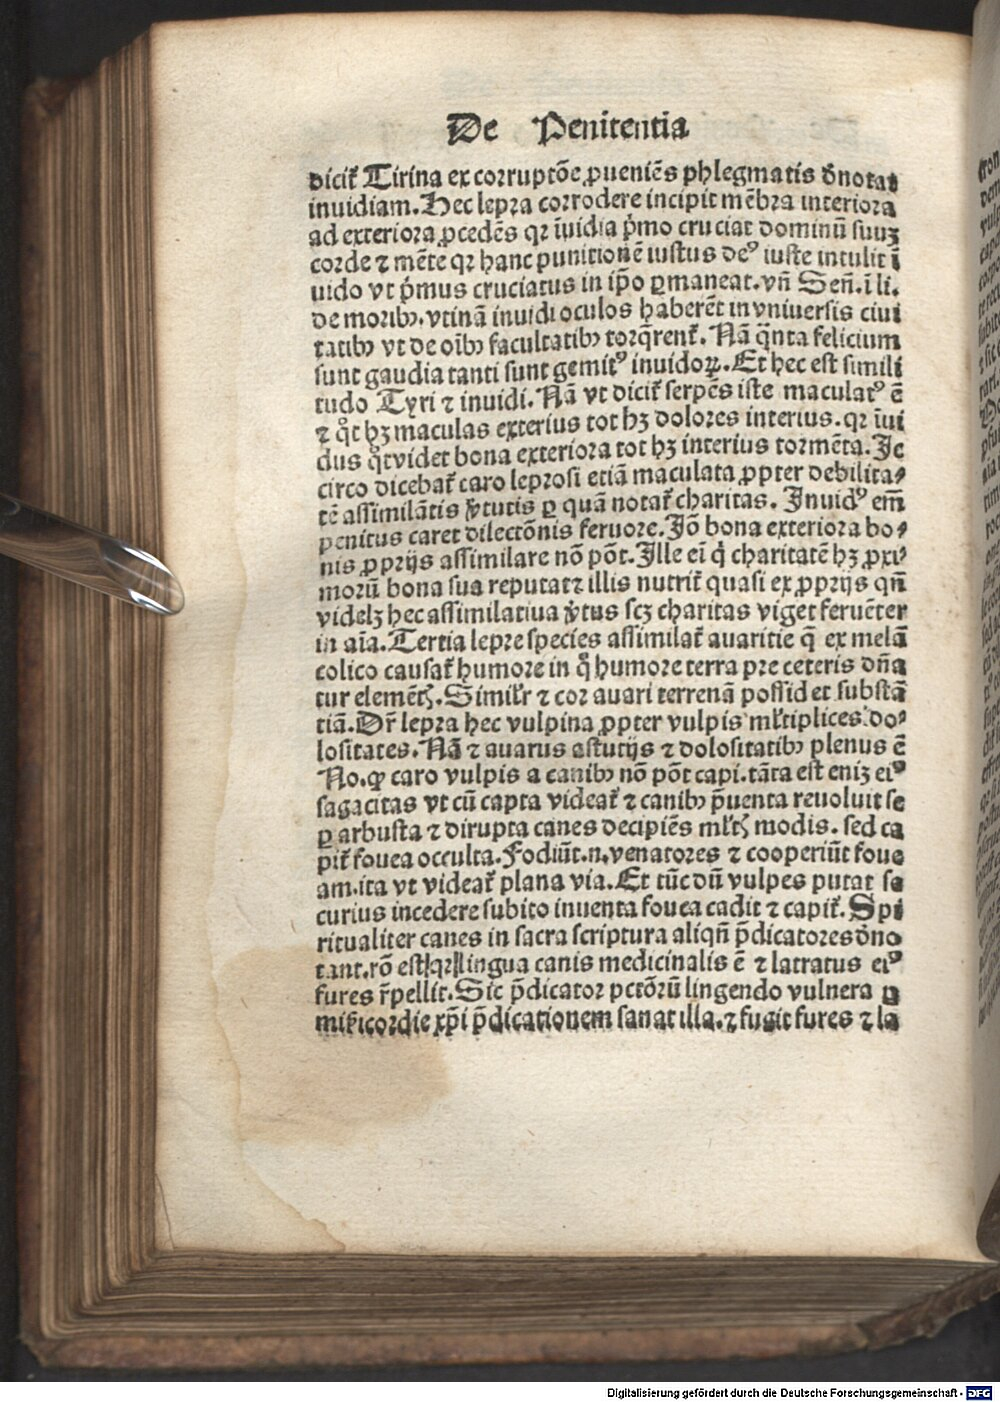 De Penitentia
dicit᷑ Tirina ex corruptōe ꝓueniēs phlegmatis d̄notat
inuidiam. Hec lepra corrodere incipit mēbra interiora
ad exteriora ꝓcedēs qꝛ īuidia p̄mo cruciat dominū suuꝫ
corde ⁊ mēte qꝛ hanc punitionē iustus deꝰ iuste intulit ī
uido vt p̄mus cruciatus in ip̄o ꝑmaneat. vn̄ Sen̄. ī li.
de moribꝰ. vtinā inuidi oculos haberēt in vniuersis ciui
tatibꝰ vt de oībꝰ facultatibꝰ torq̄rent᷑. Nā q̄nta felicium
sunt gaudia tanti sunt gemitꝰ inuidoꝝ. Et hec est simili
tudo Tyri ⁊ inuidi. Nā vt dicit᷑ serpēs iste maculatꝰ ē
⁊ qͦt hꝫ maculas exterius tot hꝫ dolores interius. qꝛ īui
dus qͦt videt bona exteriora tot hꝫ interius tormēta. Jc
circo dicebat᷑ caro leprosi etiā maculata ꝓpter debilita⸗
tē assimilātis v̓tutis ꝑ quā notat᷑ charitas. Inuidꝰ em̄
penitus caret dilectōnis feruore. Jō bona exteriora bo⸗
nis ꝓprijs assimilare nō pōt. Ille eī q̇ charitatē hꝫ ꝓxi⸗
morū bona sua reputat ⁊ illis nutrit᷑ quasi ex ꝓprijs qn̄
videlꝫ hec assimilatiua v̓tus scꝫ charitas viget feruēter
in aīa. Tertia lepre species assimilat᷑ auaritie q̄ ex melā
colico causat᷑ humore in qͦ humore terra pre ceteris dn̄a
tur elemēt̄ꝭ. Simil̓r ⁊ cor auari terrenā possidet substā
tiā. Dr̄ lepra hec vulpina ꝓpter vulpis ml̓tiplices do⸗
lositates. Nā ⁊ auarus astutijs ⁊ dolositatibꝰ plenus ē
No. ꝙ caro vulpis a canibꝰ nō pōt capi. tāta est eniꝫ eiꝰ
sagacitas vt cū capta videat᷑ ⁊ canibꝰ p̄uenta reuoluit se
ꝑ arbusta ⁊ dirupta canes decipiēs ml̓tꝭ modis. sed ca
pit᷑ fouea occulta. Fodiūt .n. venatores ⁊ cooperiūt foue
am. ita vt videat᷑ plana via. Et tūc dū vulpes putat se
curius incedere subito inuenta fouea cadit ⁊ capit᷑. Spi
ritualiter canes in sacra scriptura aliqn̄ p̄dicatores d̄no
tant. rō est qꝛ lingua canis medicinalis ē ⁊ latratus eiꝰ
fures r̄pellit. Sic p̄dicator pctōrū lingendo vulnera ꝑ
mi̅sicordie xp̄i p̄dicationem sanat illa. ⁊ fugit fures ⁊ la
Digitalisierung gefördert durch die Deutsche Forschungsgemeinschaft - DFG